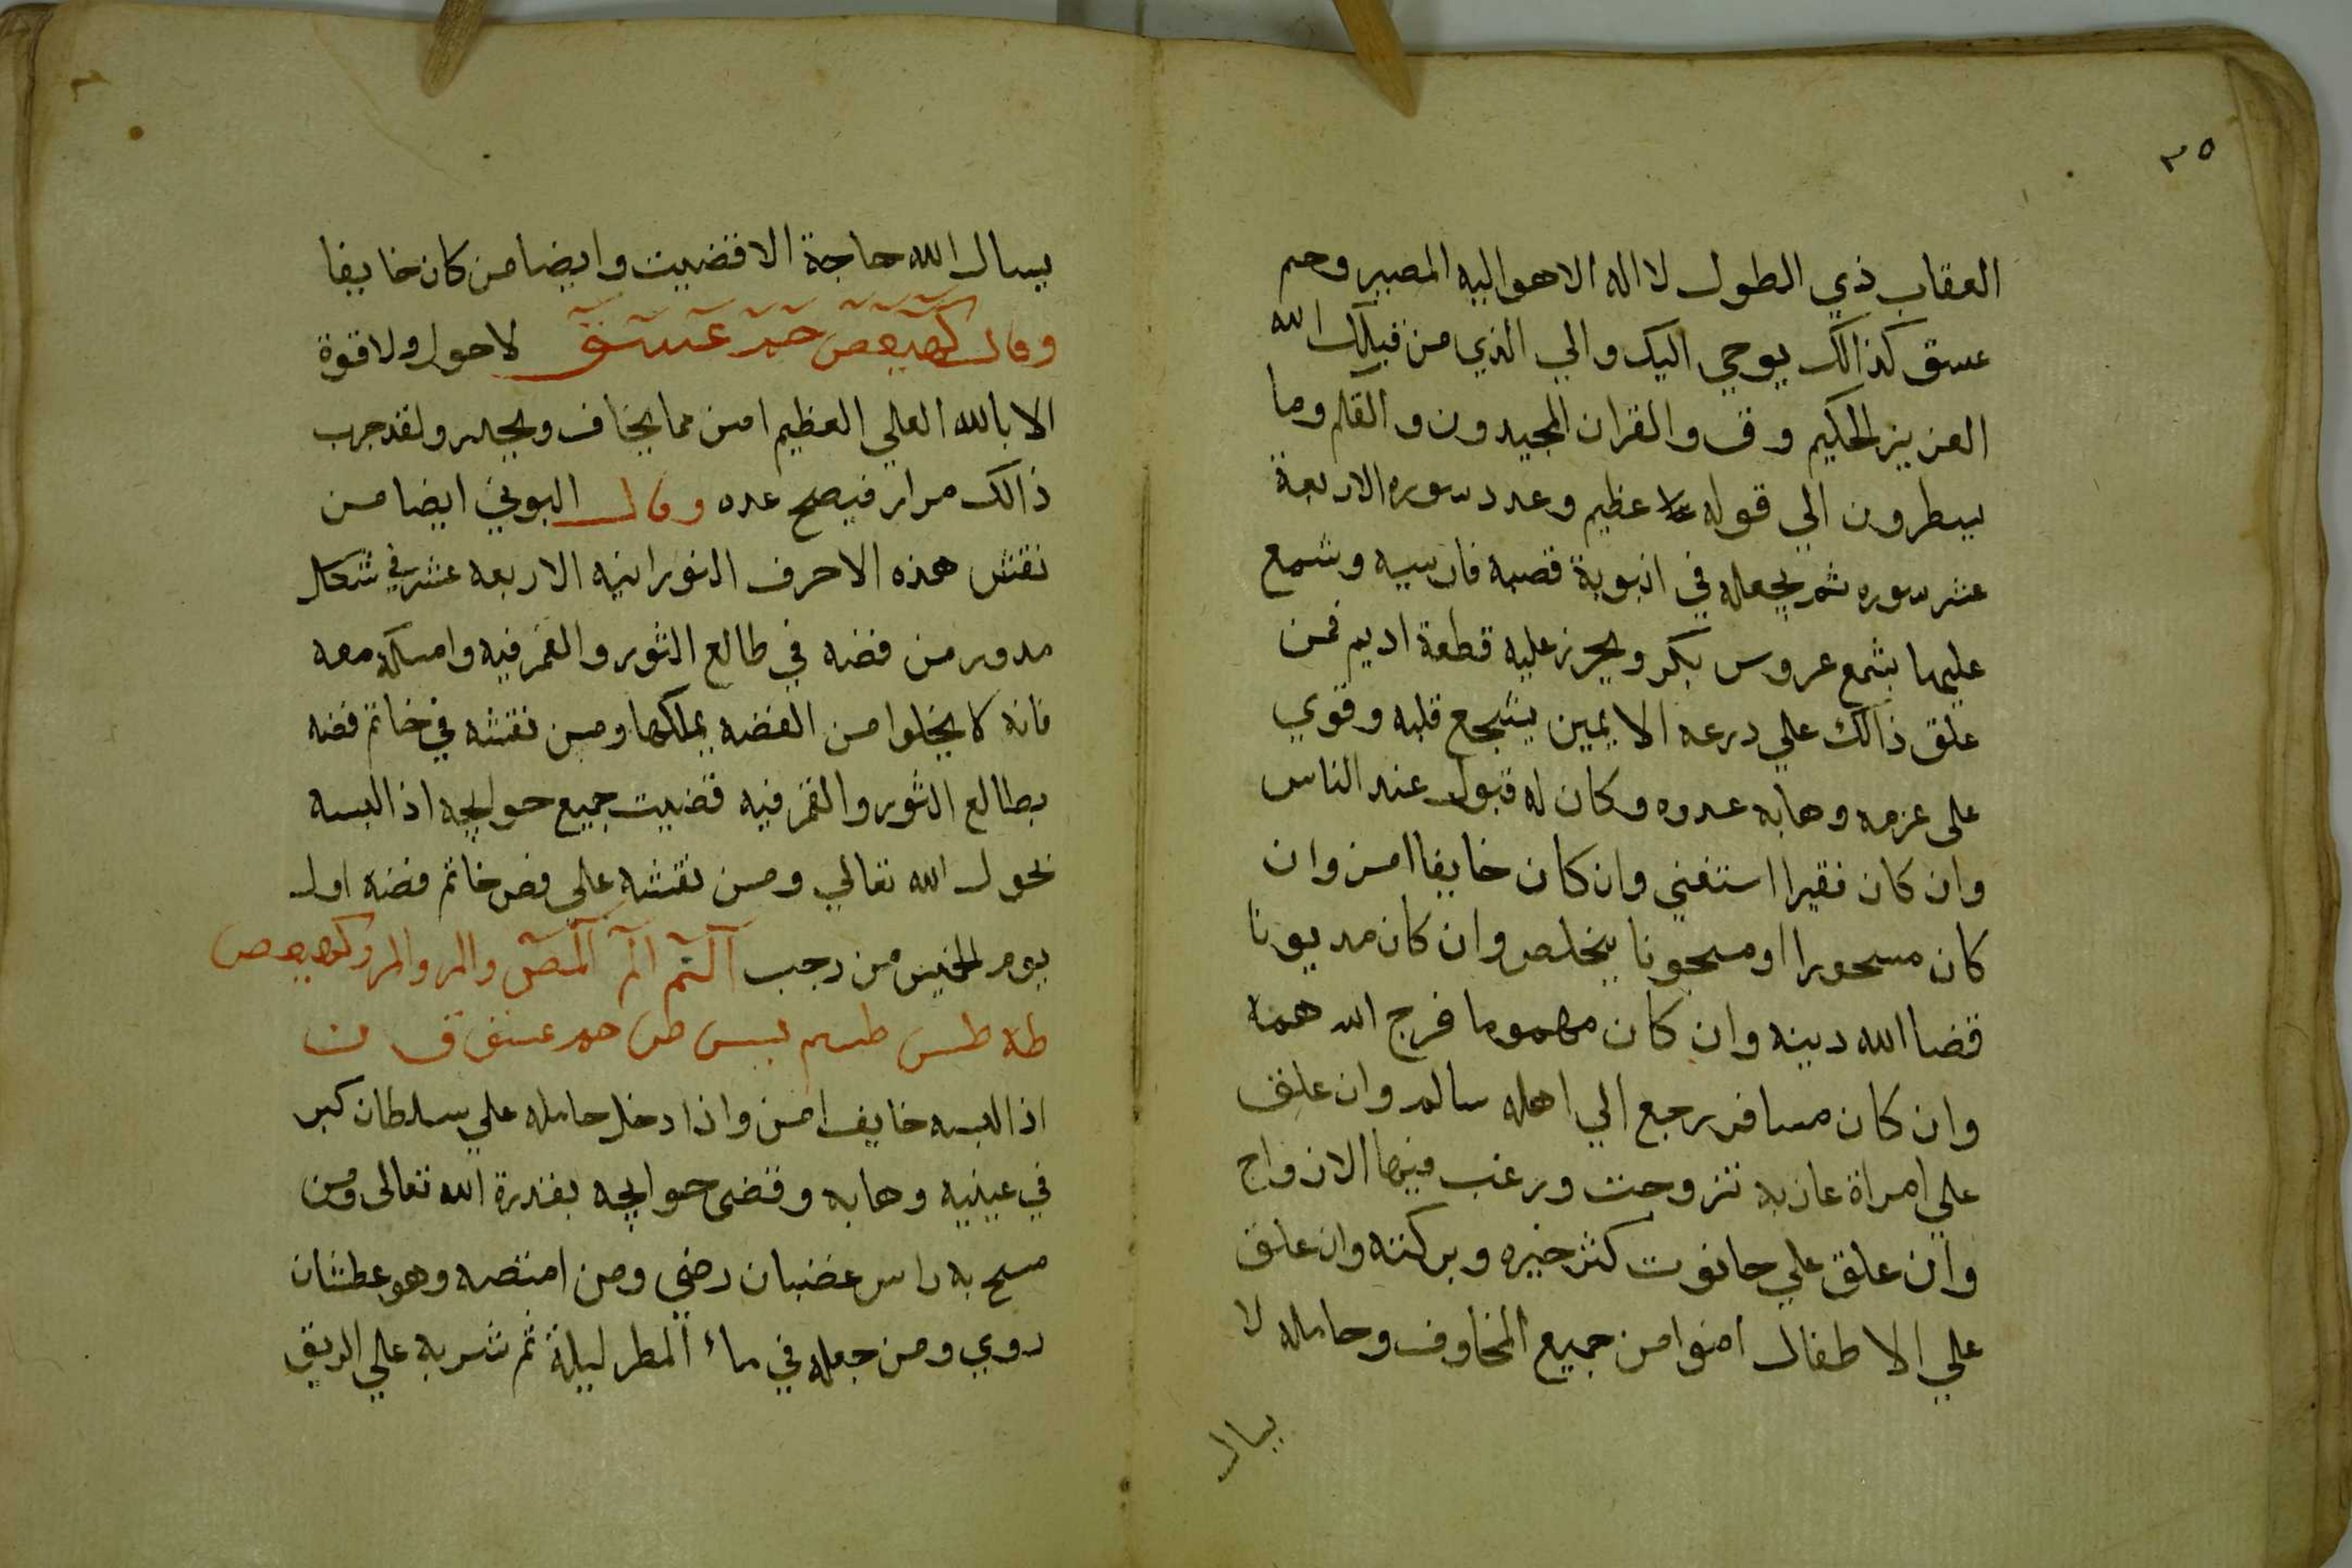 ٣٥
العقاب ذي الطول لا اله الا هو اليه المصير وحم
عسق كذالك يوحي اليك والي الذي من قبلك الله
العزيز الحكيم وق والقران المجيد ون والقلم وما
يسطرون الي قوله عظيم وعدد سوره الاربعة
عشر سوره ثم يجعله في انبوبة قصبه فارسيه وشمع
عليها بشمع عروس بكر ويحرز عليه قطعة اديم فمن
علق ذالك علي درعه الايمين يشجع قلبه وقوي
على عزمه وهابه عدوه وكان له قبول عند الناس
وان كان فقيرا استغني وان كان خايفا امن وان
كان مسحورا او مسجونا يخلص وان كان مديونا
قضا الله دينه وان كان مهموما فرج الله همه
وان كان مسافر رجع الي اهله سالم وان علق
علي امراة عازبه تزوجت ورغب فيها الازواج
وان علق علي حانوت كثر خيره وبركته وان علق
علي الاطفال امنوا من جميع المخاوف وحامله لا
يسال
يسال الله حاجة الا قضيت وايضا من كان خايفا
وقال كهيعص حم عسق لا حول ولا قوة
الا بالله العلي العظيم امن مما يخاف ويحدر ولقد جرب
ذالك مرار فيصح عده وقال البوني ايضا من
نقش هذه الاحرف النورانيه الاربعه عشر في شكل
مدور من فضه في طالع الثور والقمر فيه وامسكه معه
فانه لا يخلوا من الفضه يملكها ومن نقشه في خاتم فضه
بطالع الثور والقمر فيه قضيت جميع حوايجه اذا لبسه
بحول الله تعالي ومن نقشه علي فص خاتم فضه اول
يوم الخميس من رجب الم الم المص والر والمر وكهيعص
طه طس طسم يس ص حم عسق ق ن
اذا لبسه خايف امن واذا دخل حامله علي سلطان كبر
في عينيه وهابه وقضى حوايجه بقدرة الله تعالى ومن
مسح به راس غضبان رضي ومن امتصه وهو عطشان
روي ومن جعله في ماء المطر ليلة ثم شربه علي الريق